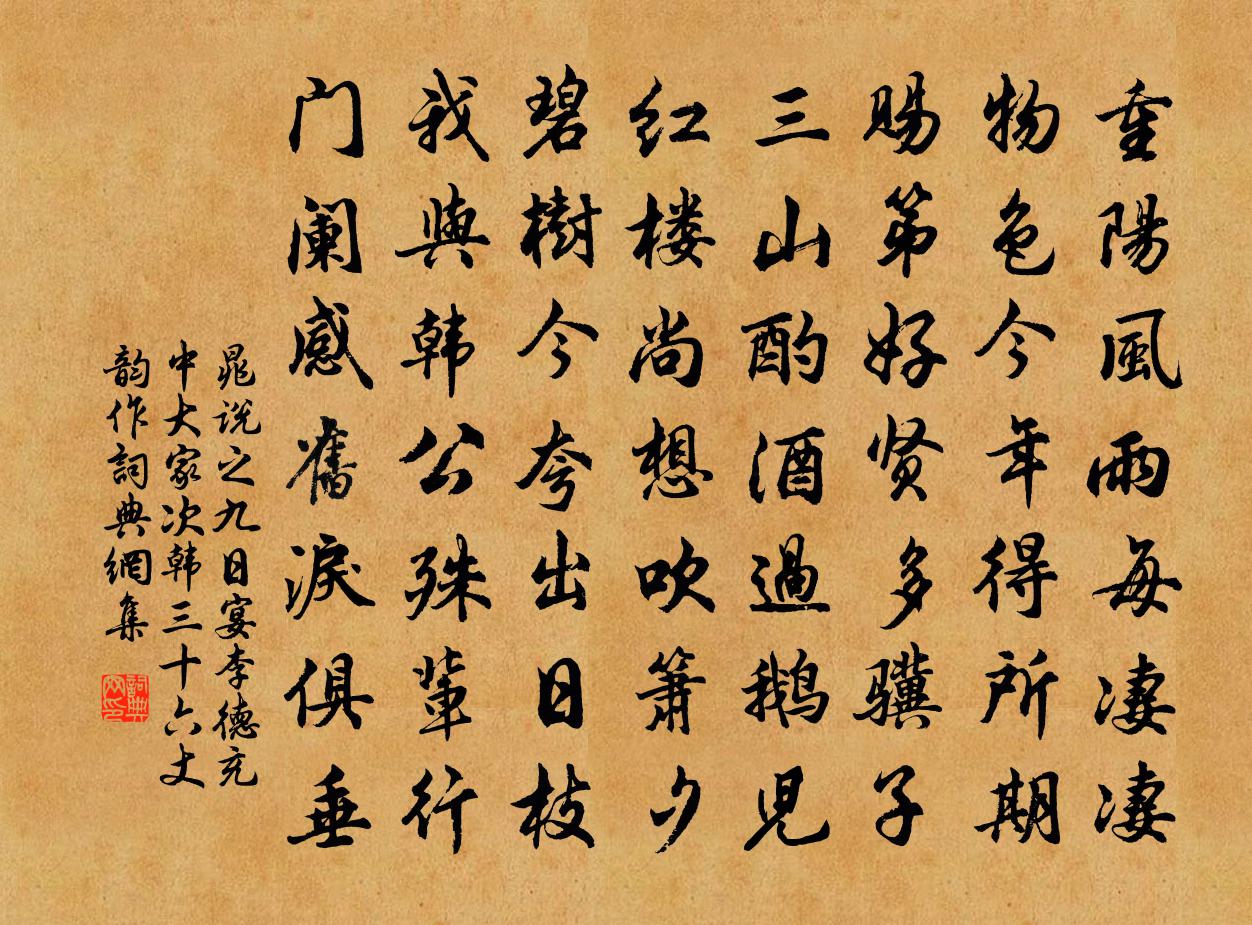 重陽風雨每凄凄
物色今年得所期
賜第好贤多骥子
三山酌酒過鹅兒
红楼尚想吹箫夕
碧樹今夸出日枝
我與韩公殊輩行
门阑感舊淚俱垂
晁说之九日宴李德充
中大家次韩三十六丈
韵作詞典網集
詞典网印